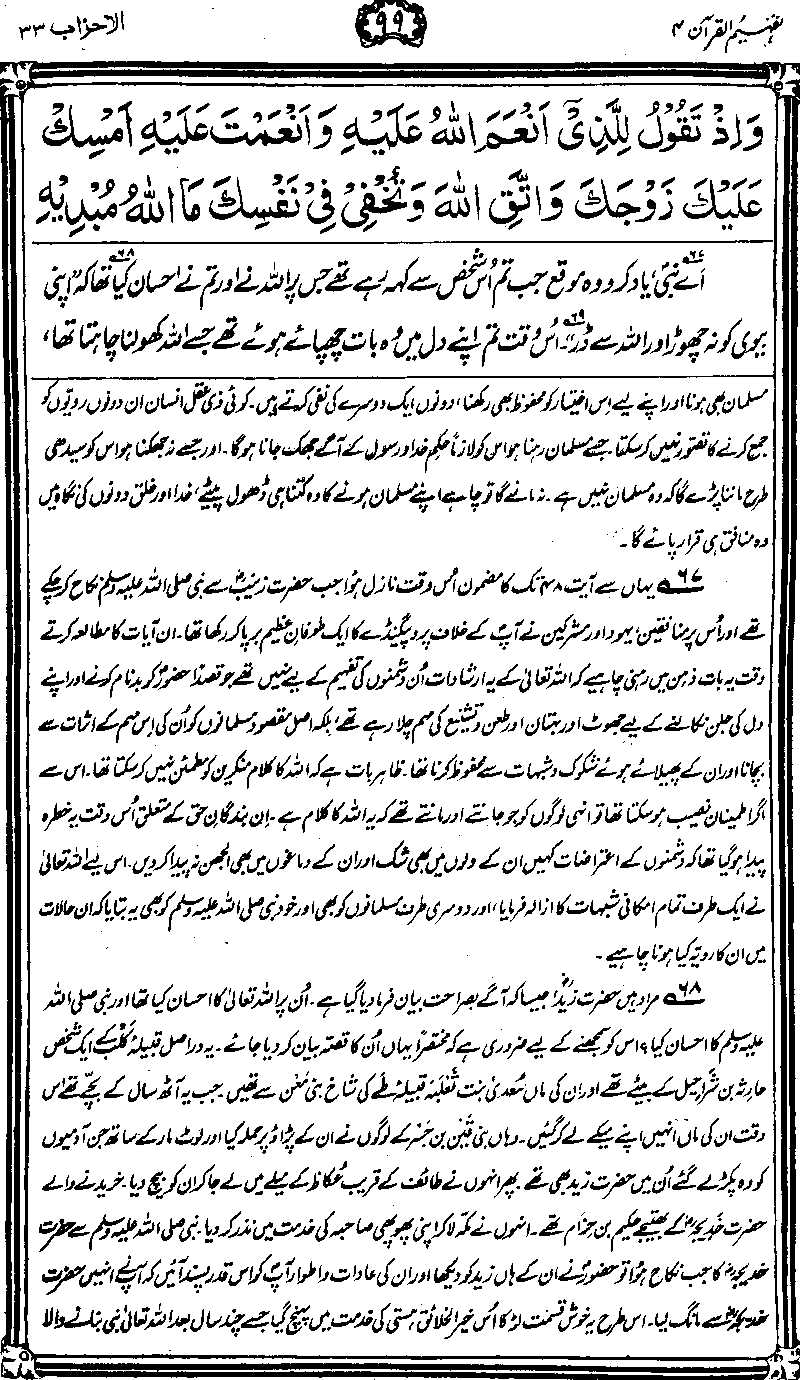 تفہیم القرآن ۴
۹۹
الاحزاب ۳۳
وَاِذْ تَقُوْلُ لِلَّذِیْۤ اَنْعَمَ اللّٰهُ عَلَیْهِ وَاَنْعَمْتَ عَلَیْهِ اَمْسِكْ
عَلَیْكَ زَوْجَكَ وَاتَّقِ اللّٰهَ وَتُخْفِیْ فِیْ نَفْسِكَ مَا اللّٰهُ مُبْدِیْهِ
اَے نبیؐ، یاد کرو وہ موقع جب تم اُس شخص سے کہہ رہے تھے جس پر اللہ نے اور تم نے احسان کیا تھا کہ "اپنی
بیوی کو نہ چھوڑ اور اللہ سے ڈر"۔ اُس وقت تم اپنے دل میں وہ بات چھپائے ہوئے تھے جسے اللہ کھولنا چاہتا تھا،
مسلمان بھی ہونا اور اپنے لیے اِس اختیار کو محفوظ بھی رکھنا، دونوں ایک دوسرے کی نفی کرتے ہیں۔ کوئی ذی عقل انسان ان دونوں رویّوں کو
جمع کرنے کا تصور نہیں کر سکتا۔ جسے مسلمان رہنا ہو اس کو لازماً حکمِ خدا و رسول کے آگے جھک جانا ہوگا۔ اور جسے نہ جھکنا ہو اس کو سیدھی
طرح ماننا پڑے گا کہ وہ مسلمان نہیں ہے۔ نہ مانے گا تو چاہے اپنے مسلمان ہونے کا وہ کتنا ہی ڈھول پیٹے، خدا اور خلق دونوں کی نگاہ میں
وہ منافق ہی قرار پائے گا۔
۶۷ یہاں سے آیت ۴۸ تک کا مضمون اُس وقت نازل ہوا جب حضرت زینبؓ سے نبی صلی اللہ علیہ وسلم نکاح کر چکے
تھے اور اُس پر منافقین، یہود اور مشرکین نے آپؐ کے خلاف پروپیگنڈے کا ایک طوفانِ عظیم برپا کر رکھا تھا۔ ان آیات کا مطالعہ کرتے
وقت یہ بات ذہن میں رہنی چاہیے کہ اللہ تعالیٰ کے یہ ارشادات اُن دشمنوں کی تفہیم کے لیے نہیں تھے جو قصداً حضورؐ کو بدنام کرنے اور اپنے
دل کی جلن نکالنے کے لیے جھوٹ اور بہتان اور طعن و تشنیع کی مہم چلا رہے تھے، بلکہ اصل مقصود مسلمانوں کو اُن کی اِس مہم کے اثرات سے
بچانا اور ان کے پھیلائے ہوئے شکوک و شبہات سے محفوظ کرنا تھا۔ ظاہر بات ہے کہ اللہ کا کلام منکرین کو مطمئن نہیں کر سکتا تھا۔ اس سے
اگر اطمینان نصیب ہو سکتا تھا تو انہی لوگوں کو جو جانتے اور مانتے تھے کہ یہ اللہ کا کلام ہے۔ اِن بندگانِ حق کے متعلق اُس وقت یہ خطرہ
پیدا ہو گیا تھا کہ دشمنوں کے اعتراضات کہیں ان کے دلوں میں بھی شک اور ان کے دماغوں میں بھی الجھن نہ پیدا کر دیں۔ اس لیے اللہ تعالیٰ
نے ایک طرف تمام امکانی شبہات کا ازالہ فرمایا، اور دوسری طرف مسلمانوں کو بھی اور خود نبی صلی اللہ علیہ وسلم کو بھی یہ بتایا کہ ان حالات
میں ان کا رویّہ کیا ہونا چاہیے۔
۶۸ مراد ہیں حضرت زیدؓ، جیسا کہ آگے بصراحت بیان فرما دیا گیا ہے۔ اُن پر اللہ تعالیٰ کا احسان کیا تھا اور نبی صلی اللہ
علیہ وسلم کا احسان کیا؟ اس کو سمجھنے کے لیے ضروری ہے کہ مختصراً یہاں اُن کا قصّہ بیان کر دیا جائے۔ یہ دراصل قبیلۂ کَلْب کے ایک شخص
حارثہ بن شَراحیل کے بیٹے تھے اور ان کی ماں سُعدیٰ بنت ثَعْلَبَہ قبیلۂ طَے کی شاخ بنی مُعْن سے تھیں۔ جب یہ آٹھ سال کے بچے تھے اُس
وقت ان کی ماں انہیں اپنے میکے لے کر گئیں۔ وہاں بنی قَیْن بن جَسْر کے لوگوں نے ان کے پڑاؤ پر حملہ کیا اور لوٹ مار کے ساتھ جن آدمیوں
کو وہ پکڑ لے گئے اُن میں حضرت زید بھی تھے۔ پھر انہوں نے طائف کے قریب عُکاظ کے میلے میں لے جا کر ان کو بیچ دیا۔ خریدنے والے
حضرت خَدیجہؓ کے بھتیجے حکیم بن حِزام تھے۔ انہوں نے مکّہ لا کر اپنی پھوپھی صاحبہ کی خدمت میں نذر کر دیا۔ نبی صلی اللہ علیہ وسلم سے حضرت
خدیجہؓ کا جب نکاح ہوا تو حضورؐ نے ان کے ہاں زید کو دیکھا اور ان کی عادات و اطوار آپؐ کو اس قدر پسند آئیں کہ آپؐ نے انہیں حضرت
خدیجہؓ سے مانگ لیا۔ اس طرح یہ خوش قسمت لڑکا اُس خیر الخلائق ہستی کی خدمت میں پہنچ گیا جسے چند سال بعد اللہ تعالیٰ نبی بنانے والا